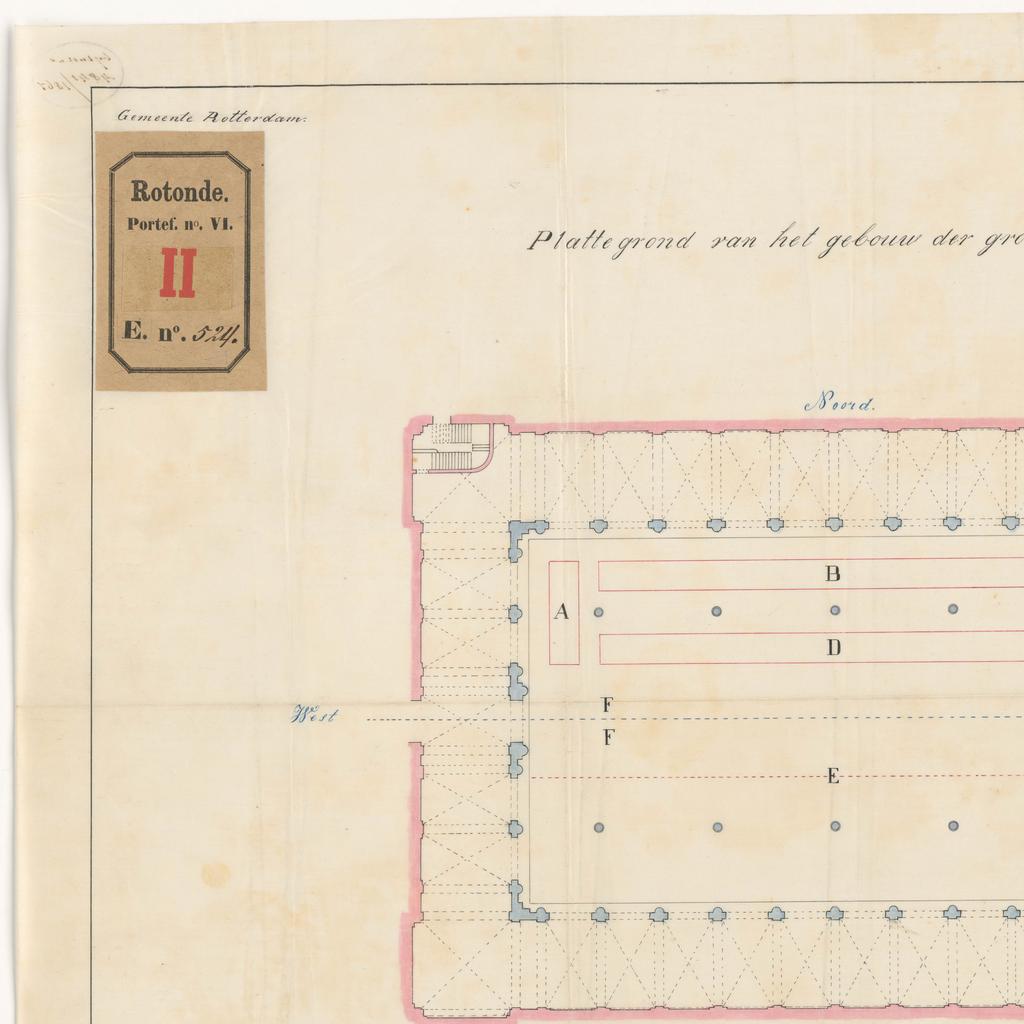 Gemeente Rotterdam.
Rotonde.
Portef. no. VI.
II
E. no. 524.
Platte grond van het gebouw der gro
Noord.
B
A
D
West
F
F
E